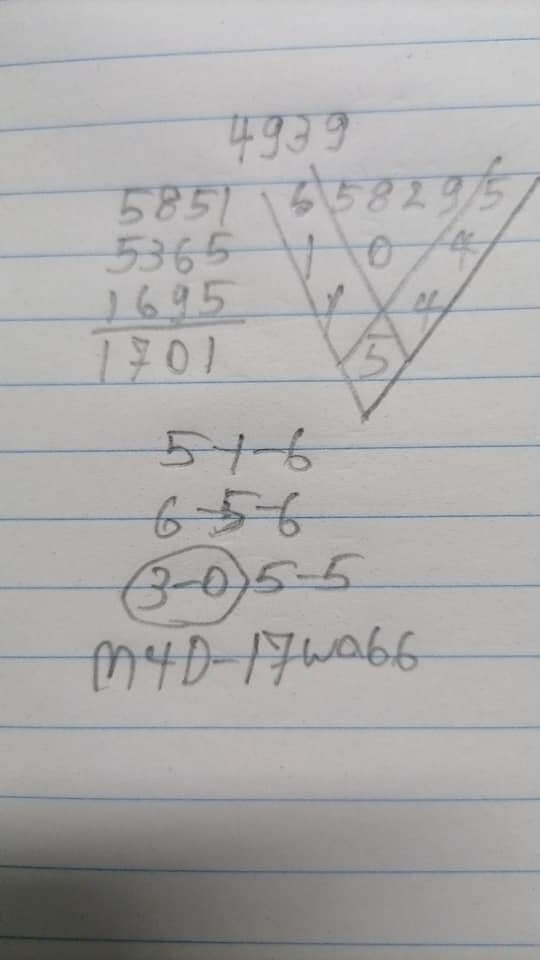 4939
5851
5365
1695
1701
6 5 8 2 9 5
1 0 4
1 4
5
5-1-6
6-5-6
3-0 5-5
M4D-17wa66